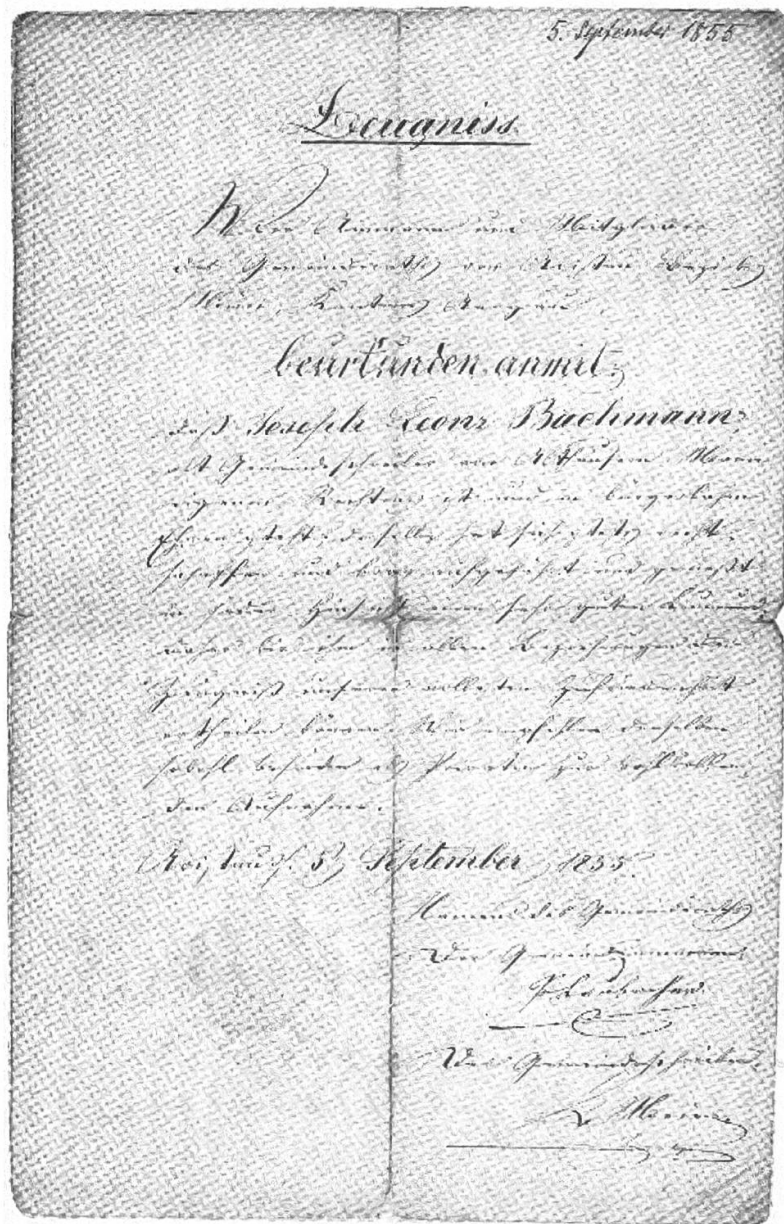 5. September 1855
Zeugniss.
Wir Ammann und Mitglieder
des Gemeinderaths von Aristau Bezirks
Muri, Kantons Aargau,
beurkunden anmit:
daß Joseph Leonz Bachmann
alt Gemeindeschreiber von Althäusern
eigenen Rechtens ist und in bürgerlichen
Ehren steht, derselbe hat sich stets recht-
schaffen und brav aufgeführt und genießt
in jeder Hinsicht einen sehr guten Leumund
daher wir ihm in allen Beziehungen das
Zeugniß unserer vollesten Zufriedenheit
ertheilen können. Wir empfehlen denselben
sowohl Behörden als Privaten zur wohlwollen-
den Aufnahme.
Aristau d. 5. September 1855.
Namens des Gemeinderaths
Der Gemeindeammann
Der Gemeindeschreiber